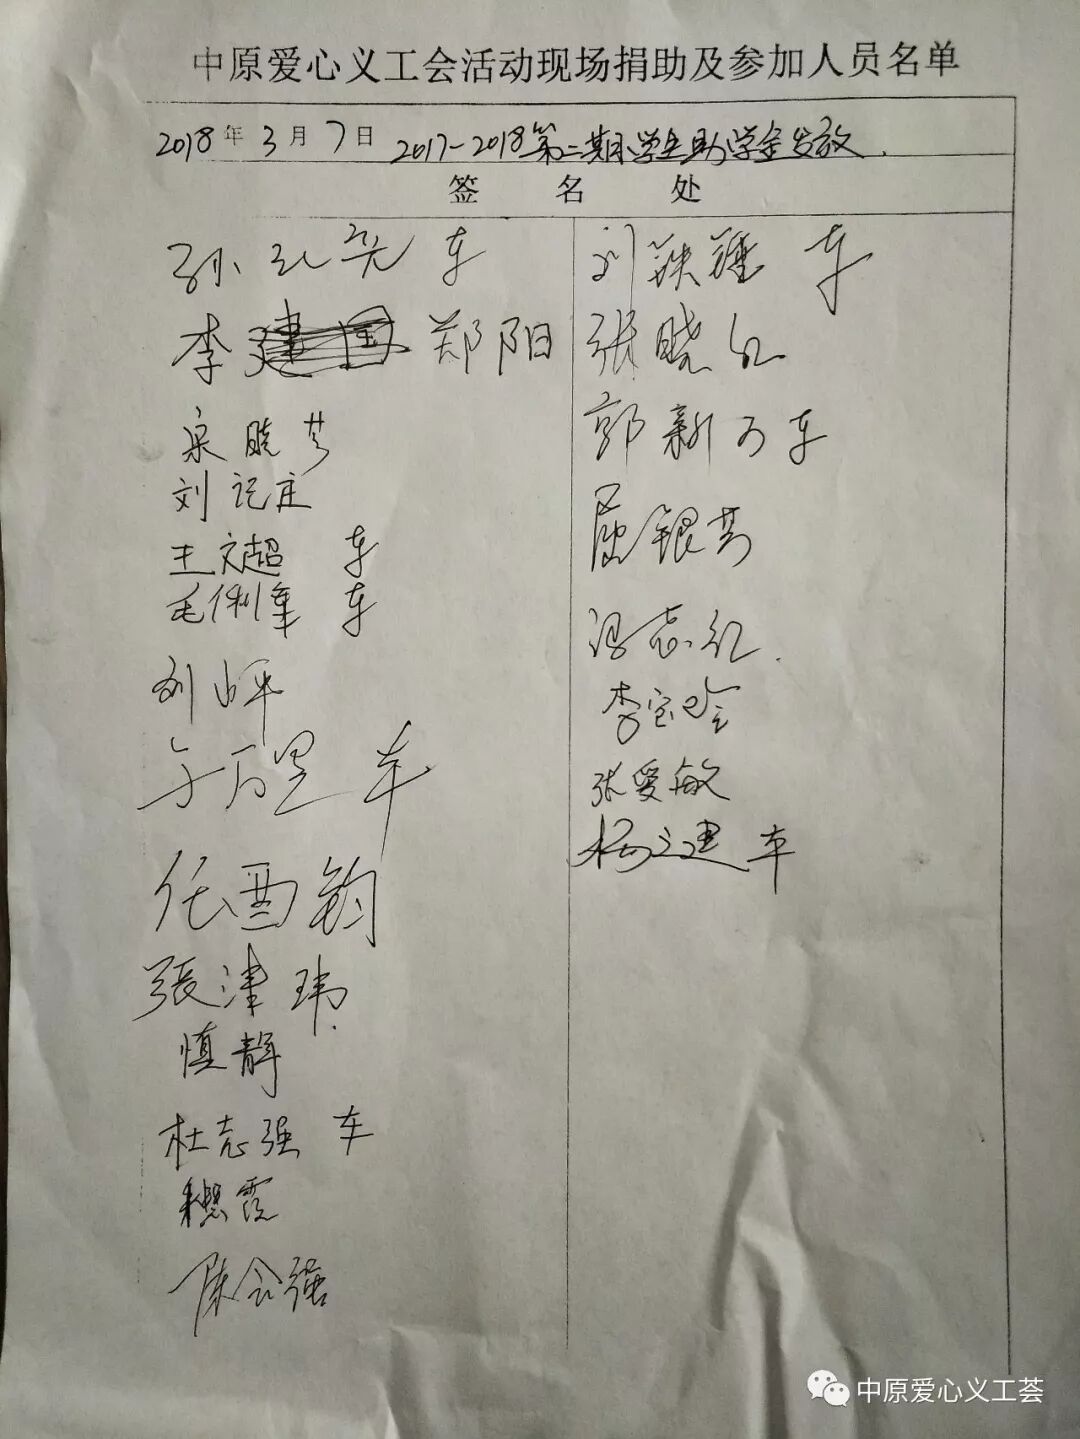 中原爱心义工会活动现场捐助及参加人员名单
2018年3月7日 2017-2018第二期小学生助学金发放.
签名处
孙 亮 车
李 郑阳
晓芬
刘记庄
王文超 车
毛俐军 车
刘
万里 车
任酉钧
張津玮
慎静
杜志强 车
霞
陈会强
刘铁锤 车
张晓红
郭新万车
屈银芳
冯志红.
李宝玲
张爱敏
杨建 车
中原爱心义工荟